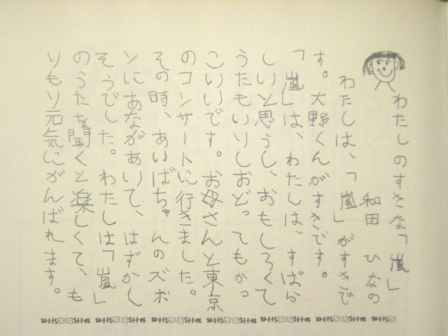 わたしのすきな「嵐」
和田 ひなの
わたしは、「嵐」がすきで
す。大野くんがすきです。
「嵐」は、わたしは、すばら
しいと思うし、おもしろくて
うたもいりしおどってもかっ
こいいです。お母さんと東京
のコンサートに行きました。
その時、あいばちゃんのズボ
ンにあながあいて、はずかし
そうでした。わたしは「嵐」
のうたを聞くと楽しくて、も
りもり元気にがんばれます。